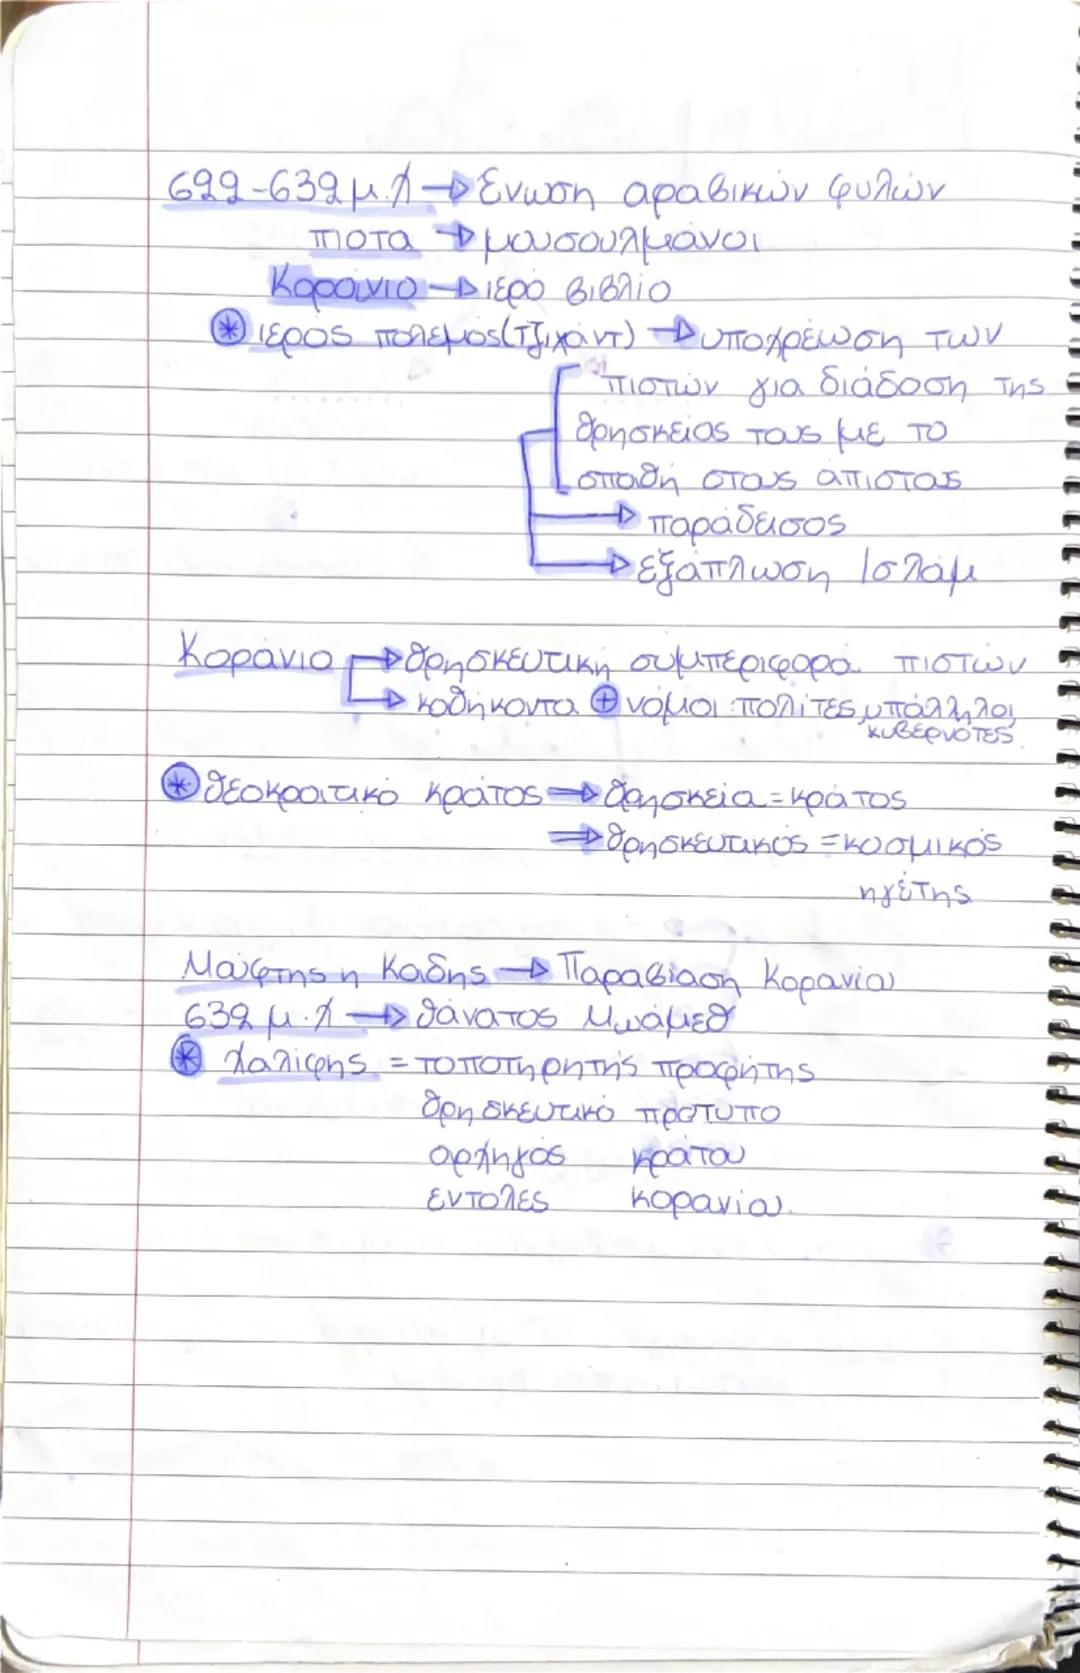 622-632 μ.Χ → Ένωση αραβικών φυλών
πιστοί → μουσουλμάνοι
Κοράνιο → ιερό βιβλίο
* ιερός πόλεμος (Τζιχάντ) → υποχρέωση των
πιστών για διάδοση της
θρησκείας τους με το
σπαθή στους άπιστους
→ παράδεισος
→ εξάπλωση Ισλάμ
Κοράνιο → θρησκευτική συμπεριφορά πιστών
→ καθήκοντα + νόμοι: πολίτες, υπάλληλοι,
κυβερνότες
* θεοκρατικό κράτος ⇒ θρησκεία = κράτος
⇒ θρησκευτικός = κοσμικός
ηγέτης
Μουφτής η Καδής → Παραβίαση Κορανίου
632 μ.Χ → θάνατος Μωάμεθ
* Χαλίφης = τοποτηρητής προφήτης
θρησκευτικό πρότυπο
αρχηγός κράτου
εντολές κορανίου.